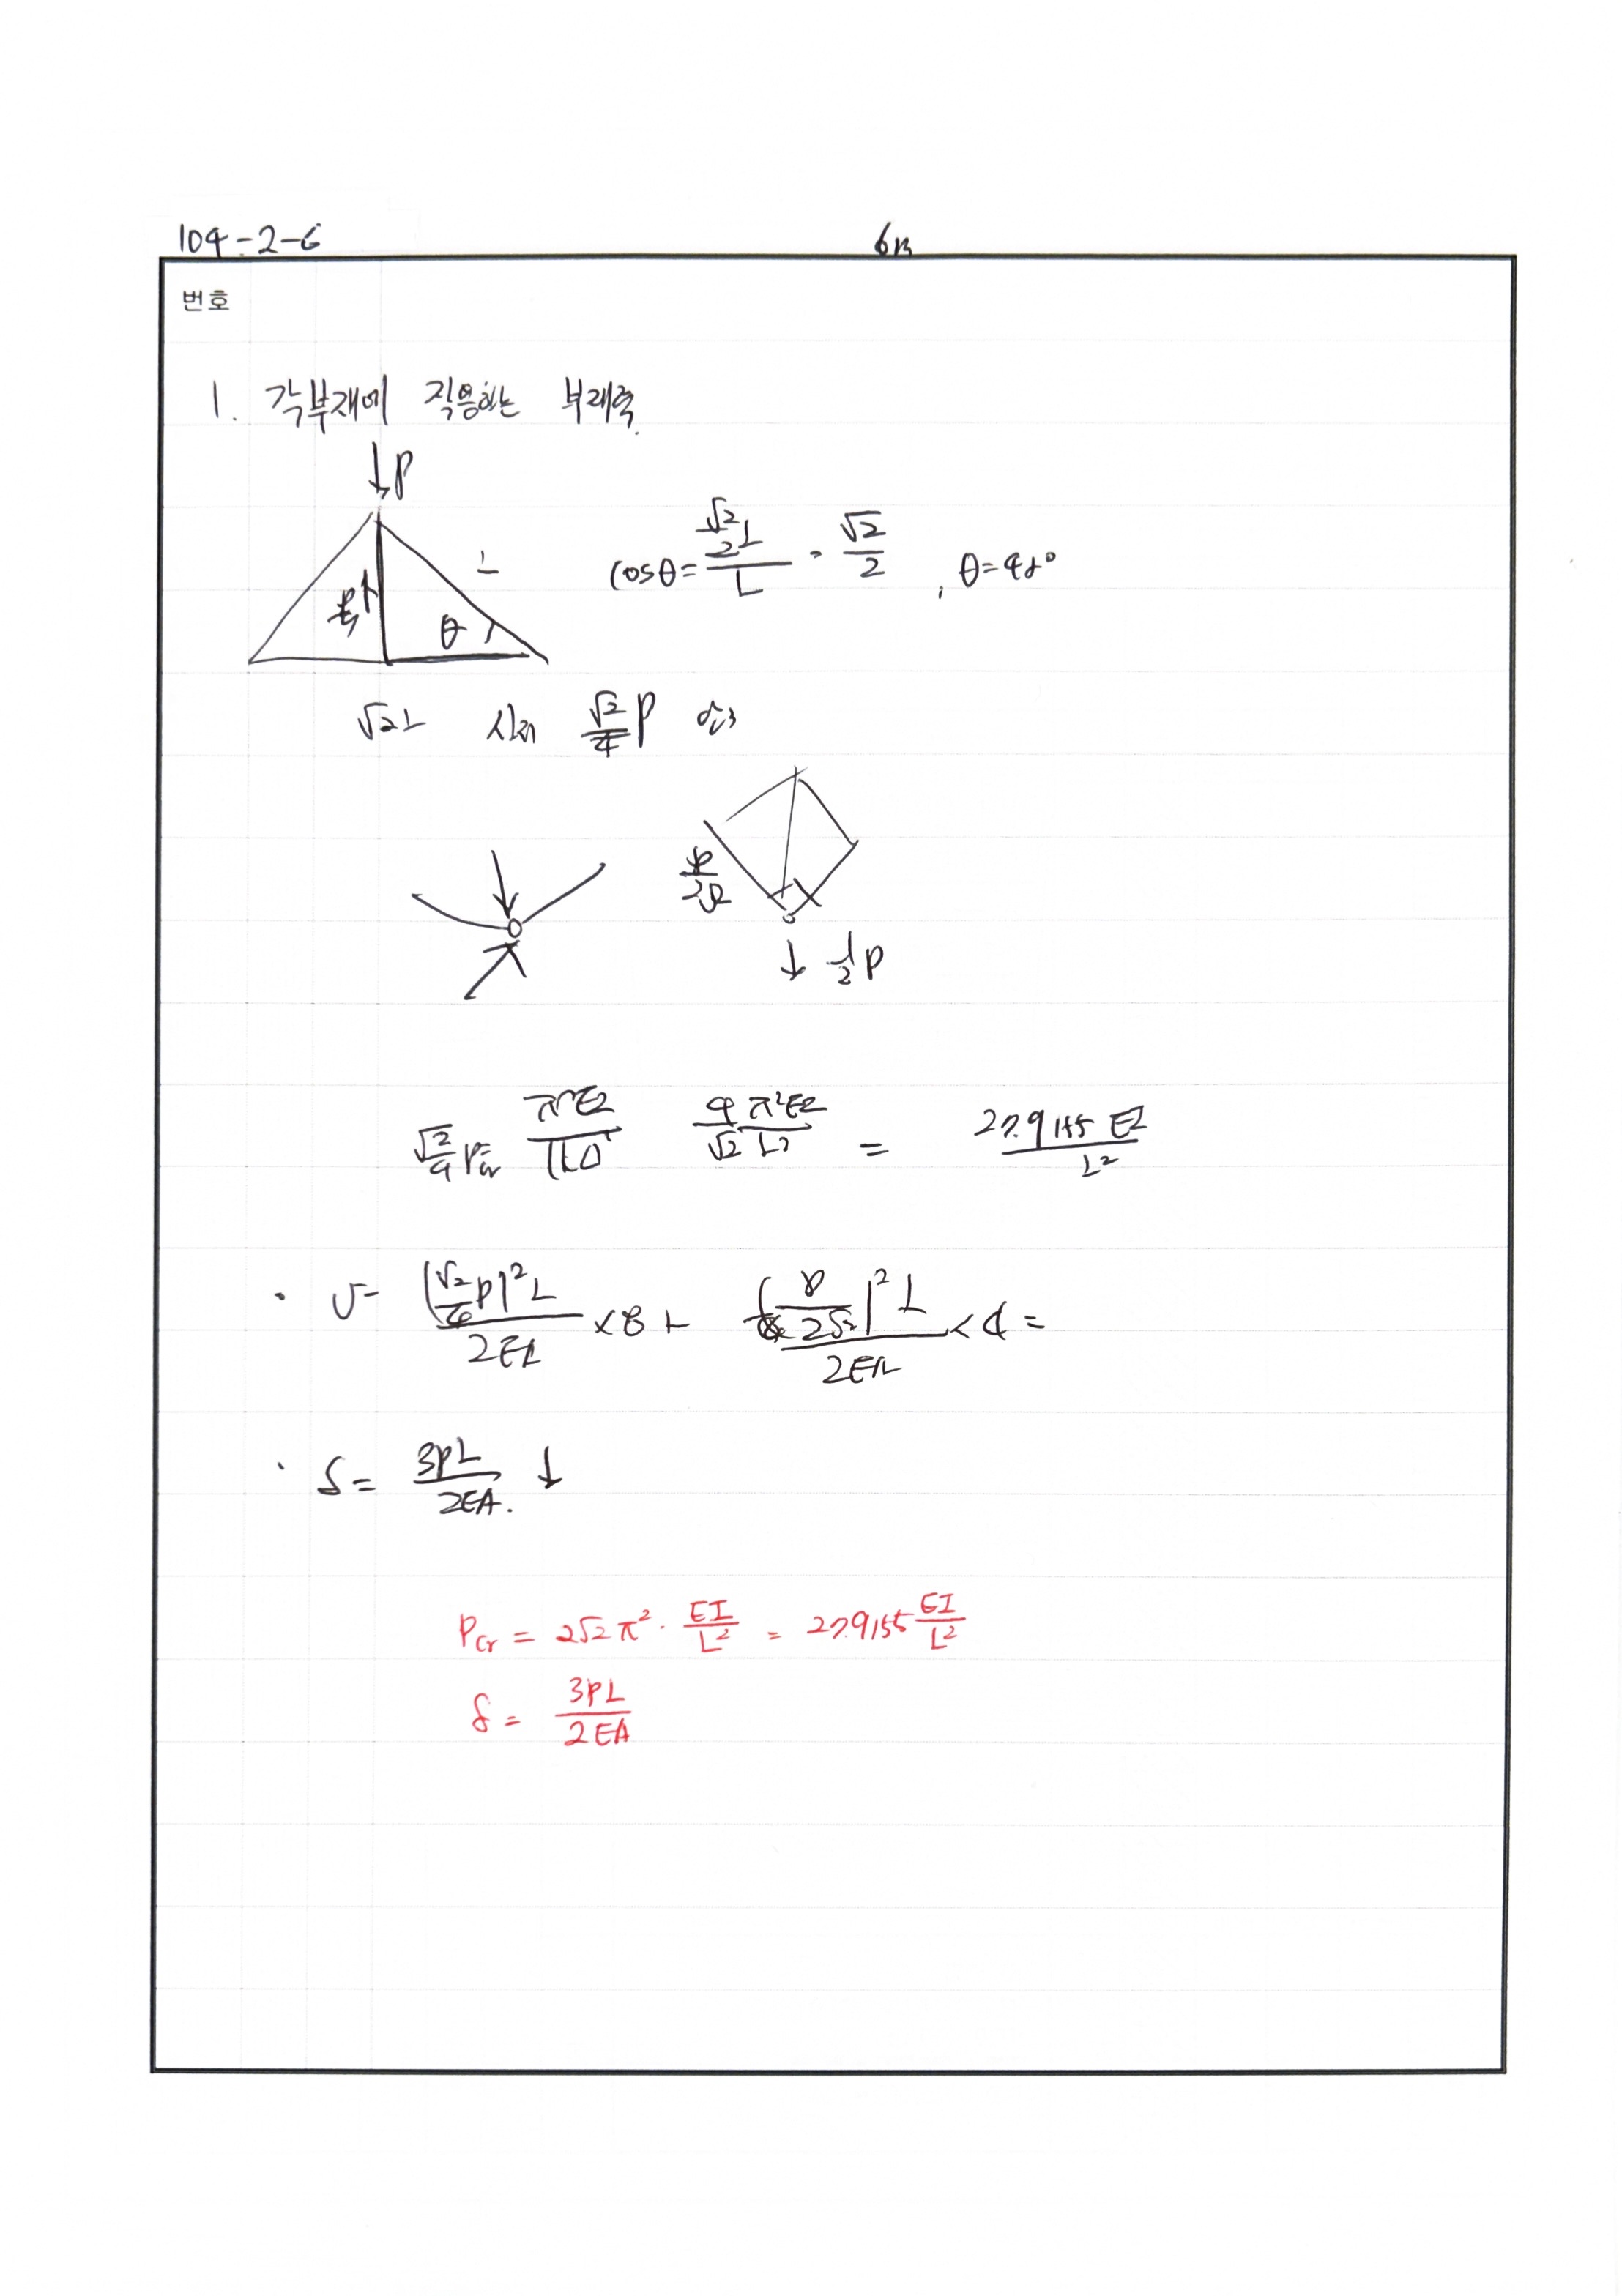 104-2-6 6m
번호
1. 각부재에 작용하는 부재력.
↓P
L cosθ = (√2/2 L)/L = √2/2 , θ=45°
θ
√2L 사재 √2/4 P 압축
P/2√2
↓ 1/2 P
√2/4 Pcr = π²EI/(1L)² 4π²EI/√2 L² = 27.9155 EI/L²
· U = (√2/4 P)²L/2EA ×8 + (P/2√2)²L/2EA ×4 =
· δ = 3PL/2EA. ↓
Pcr = 2√2π² · EI/L² = 27.9155 EI/L²
δ = 3PL/2EA